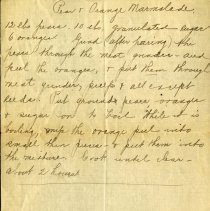 Pear & Orange Marmalade.
12 lbs pears, 10 lbs. granulated sugar
6 oranges. Grind after paring the
pears through the meat grinder - and
peel the oranges, & put them through
meat grinder, peels & all except
seeds. Put grounds pears oranges
& sugar on to boil. While it is
boiling, snip the orange peel into
small thin pieces - & put them into
the mixture. Cook until clear -
about 2 hours!